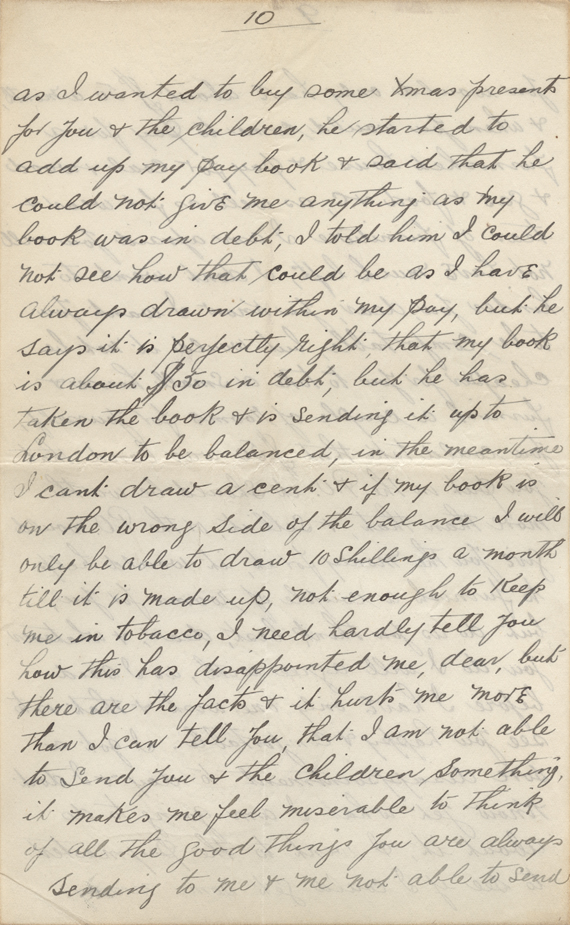 10
as I wanted to buy some Xmas presents
for you & the children, he started to
add up my pay book & said that he
could not give me anything as my
book was in debt, I told him I could
not see how that could be as I have
always drawn within my pay, but he
says it is perfectly right, that my book
is about $50 in debt, but he has
taken the book & is sending it up to
London to be balanced, in the meantime
I cant draw a cent & if my book is
on the wrong side of the balance I will
only be able to draw 10 Shillings a month
till it is made up, not enough to keep
me in tobacco, I need hardly tell you
how this has disappointed me, dear, but
there are the facts & it hurts me more
than I can tell you, that I am not able
to send you & the children something,
it makes me feel miserable to think
of all the good things you are always
sending to me & me not able to send